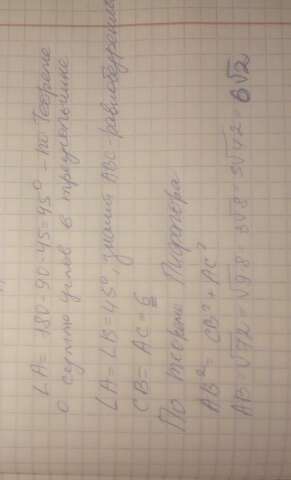 ∠A = 180-90-45=45° - по теореме
о сумме углов в треугольнике
∠A = ∠B = 45°, значит ABC-равнобедренный
CB = AC = 6
По теореме Пифагора
AB² = CB² + AC²
AB = √72 = √9·8 = 3√8 = 3√4·2 = 6√2